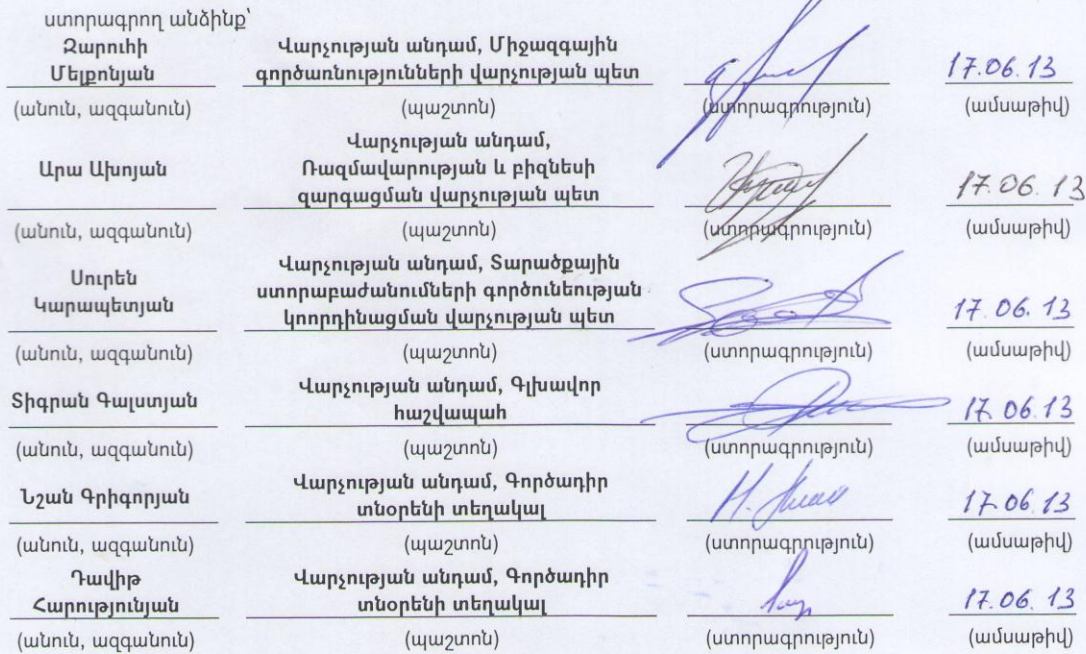 ստորագրող անձինք՝
Զարուհի
Մելքոնյան
Վարչության անդամ, Միջազգային
գործառնությունների վարչության պետ
17.06.13
(անուն, ազգանուն) (պաշտոն) (ստորագրություն) (ամսաթիվ)
Արա Ախոյան
Վարչության անդամ,
Ռազմավարության և բիզնեսի
զարգացման վարչության պետ
17.06.13
(անուն, ազգանուն) (պաշտոն) (ստորագրություն) (ամսաթիվ)
Սուրեն
Կարապետյան
Վարչության անդամ, Տարածքային
ստորաբաժանումների գործունեության
կոորդինացման վարչության պետ
17.06.13
(անուն, ազգանուն) (պաշտոն) (ստորագրություն) (ամսաթիվ)
Տիգրան Գալստյան
Վարչության անդամ, Գլխավոր
հաշվապահ
17.06.13
(անուն, ազգանուն) (պաշտոն) (ստորագրություն) (ամսաթիվ)
Նշան Գրիգորյան
Վարչության անդամ, Գործադիր
տնօրենի տեղակալ
17.06.13
(անուն, ազգանուն) (պաշտոն) (ստորագրություն) (ամսաթիվ)
Դավիթ
Հարությունյան
Վարչության անդամ, Գործադիր
տնօրենի տեղակալ
17.06.13
(անուն, ազգանուն) (պաշտոն) (ստորագրություն) (ամսաթիվ)